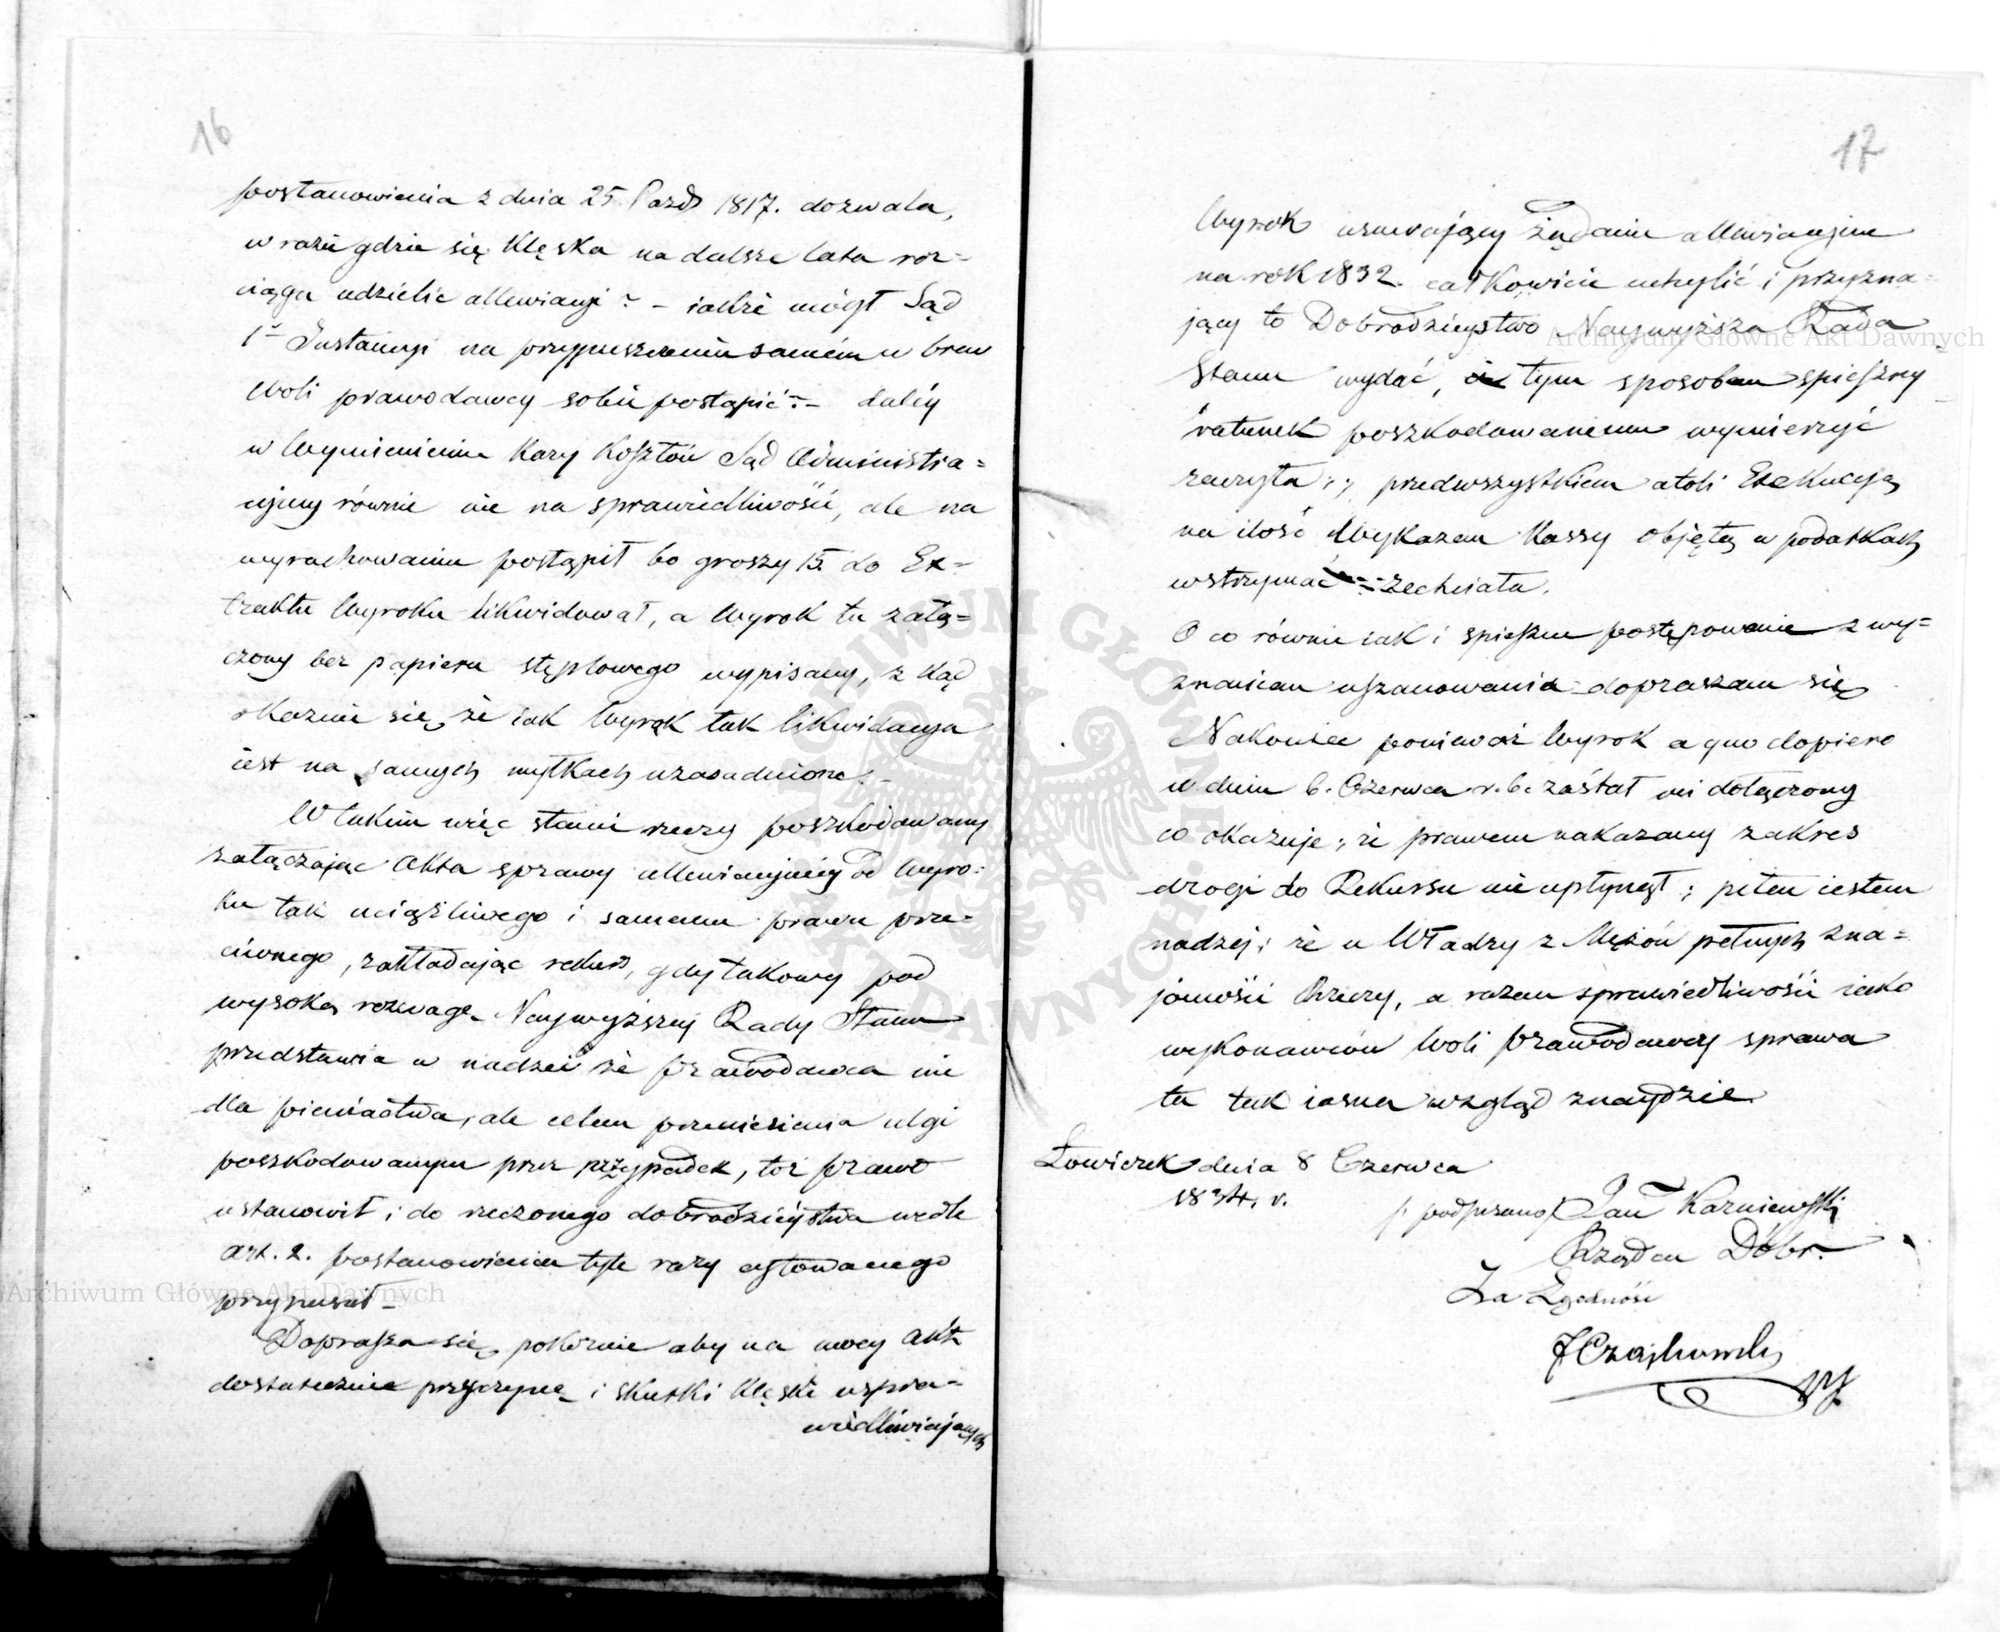 16
postanowienia z dnia 25 Pazd 1817. dozwala,
w razie gdzie się klęska na dalsze lata roz=
ciąga udzielić allewiacyi? – iakże mógł Sąd
1ej Instancyi na przypuszczeniu samém w brew
woli prawodawcy sobie postąpić? – daléy
w wymienieniu kary kosztów Sąd Administra=
cyjny równie nie na sprawiedliwości, ale na
wyrachowaniu postąpił bo groszy 15 do Ex=
traktu Wyroku likwidował, a Wyrok tu załą=
czony bez papieru stęplowego wypisany, z kąd
okazuie się, że iak Wyrok tak likwidacya
iest na samych myłkach uzasadnione. –
W takim więc stanie rzeczy poszkodowany
załączając Akta sprawy allewiacyjnéy od Wyro=
ku tak uciążliwego i samemu prawu prze=
ciwnego, zakładając rekurs, gdy takowy pod
wysoką rozwagę Naywyższej Rady Stanu
przedstawia w nadziei że prawodawca nie
dla pieniactwa, ale celem przyniesienia ulgi
poszkodowanym przez przypadek, toż prawo
ustanowił i do rzeczonego dobrodzieystwa wedle
art. 2. postanowienia tyle razy cytowanego
przypuscił –
Doprasza się pokornie aby na mocy Akt
dostatecznie przyczynę i skutki klęski uspra=
wiedliwiających
17
Wyrok usuwający żądanie allewiacyjne
na rok 1832. całkowicie uchylić i przyzna=
jący to Dobrodzieystwo Naywyższa Rada
Stanu wydać, i tym sposobem spieszny
ratunek poszkodowanemu wymierzyć
raczyła, przedewszystkiem atoli Exekucyą
na ilość Wykazem Kassy objętą w podatkach
wstrzymać zechciała.
O co równie iak i spieszne postępowanie z wy=
znaniem uszanowania dopraszam się
Nakoniec ponieważ Wyrok a quo dopiero
w dniu 6. Czerwca r. b. został mi dołączony
co okazuje, że prawem nakazany zakres
drogi do Rekursu nie upłynął; pełen iestem
nadzei, że u Władzy z Mężów pełnych zna=
jomości Rzeczy, a razem sprawiedliwości iako
wykonawców Woli prawodawcy sprawa
ta tak iasna wzgląd znaydzie
Łowiczek dnia 8 Czerwca
1834. r.
/: podpisano/ Jan Karniewski
Rządca Dóbr.
Za Zgodność
Archiwum Główne Akt Dawnych
Archiwum Główne Akt Dawnych
ARCHIWUM GŁÓWNE AKT DAWNYCH